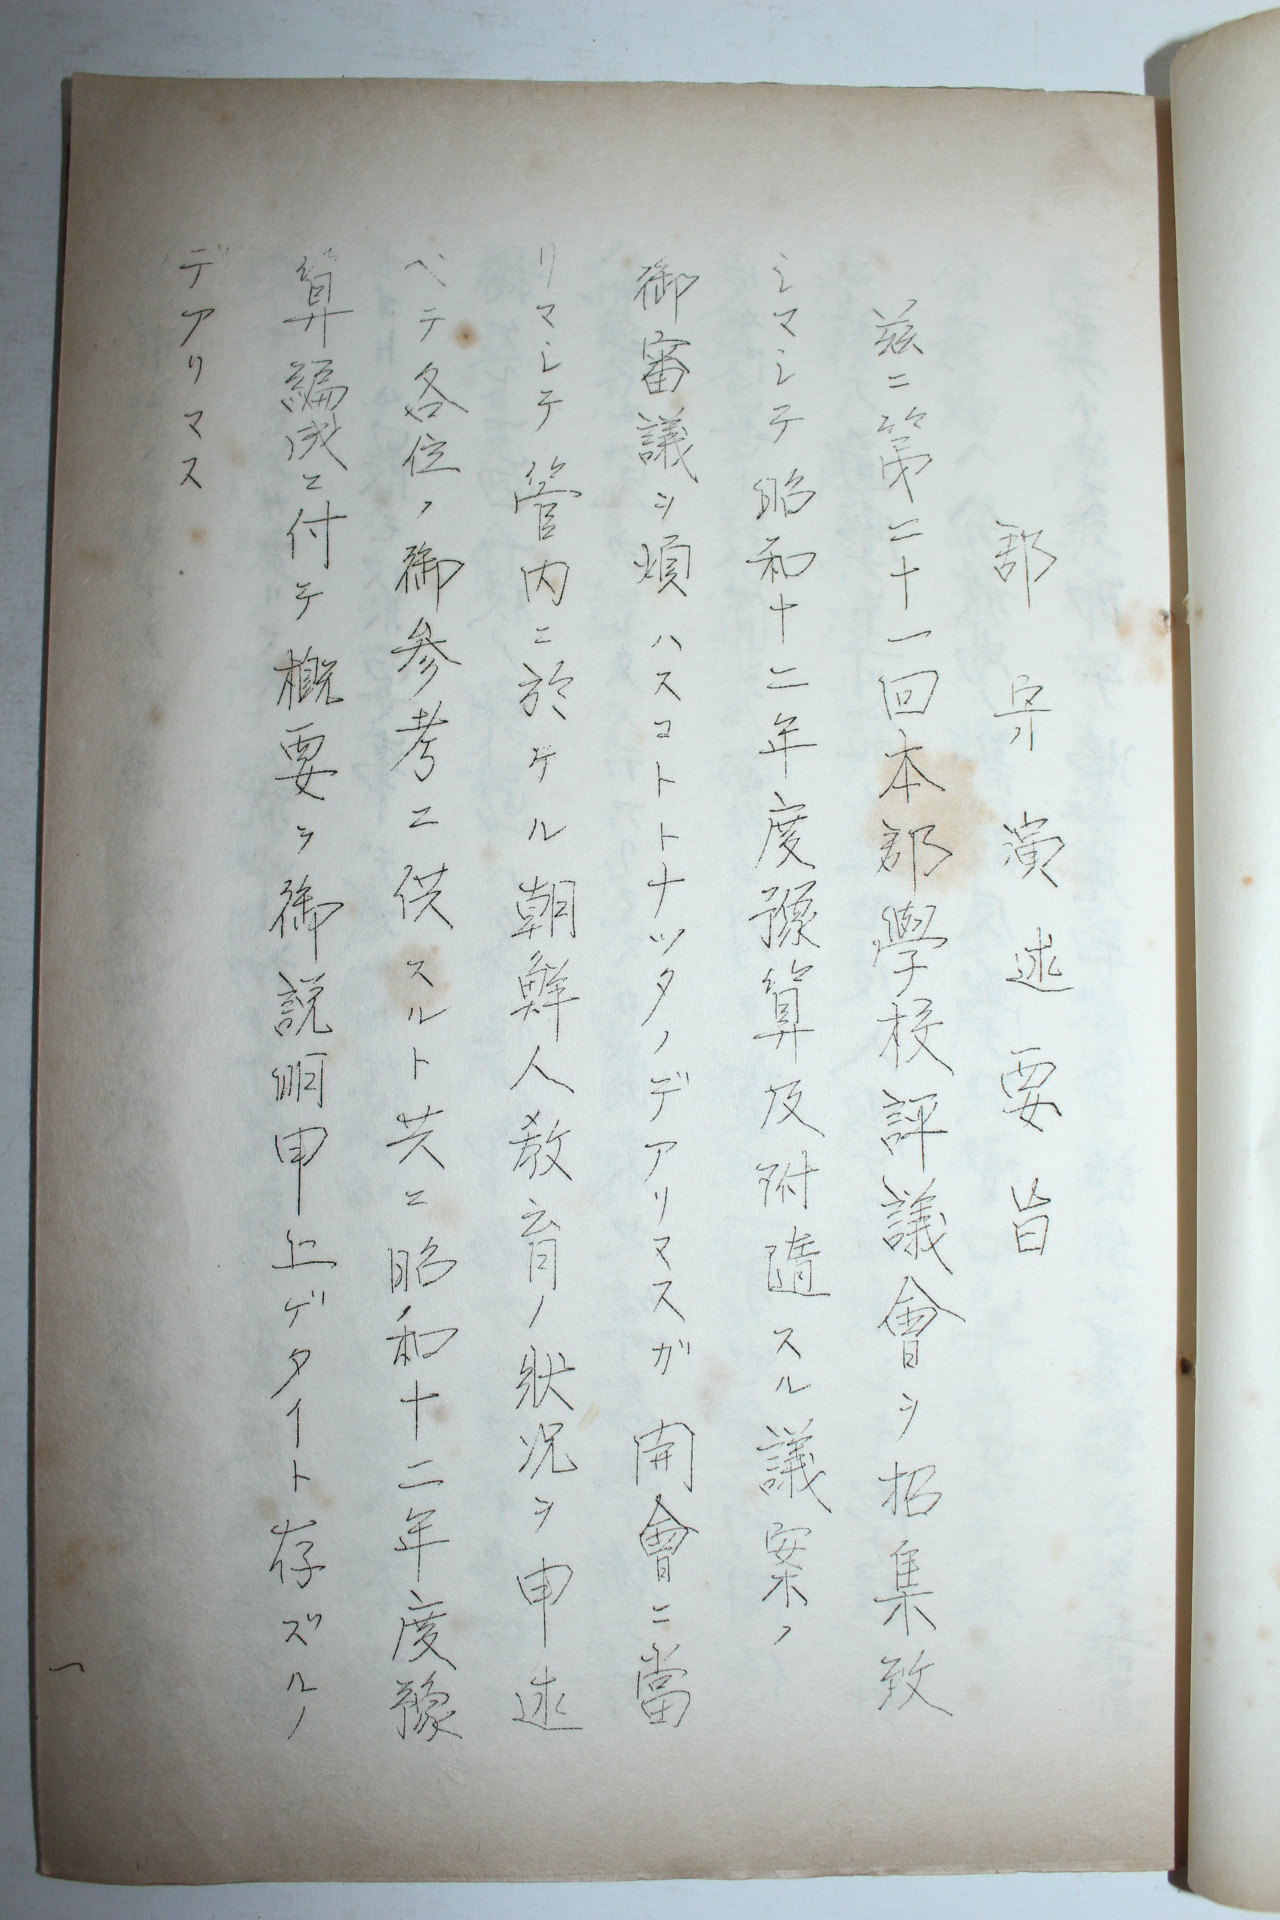 郡守演述要旨
茲ニ第二十一回本郡學校評議會ヲ招集致
シマシテ昭和十二年度豫算及附隨スル議案ノ
御審議ヲ煩ハスコトトナツタノデアリマスガ開會ニ當
リマシテ管内ニ於ケル朝鮮人敎育ノ狀況ヲ申述
ベテ各位ノ御參考ニ供スルト共ニ昭和十二年度豫
算編成ニ付テ概要ヲ御說明申上ゲタイト存ズルノ
デアリマス
一